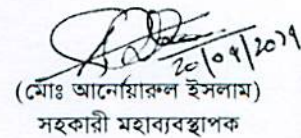 20/04/2021
(মোঃ আনোয়ারুল ইসলাম)
সহকারী মহাব্যবস্থাপক